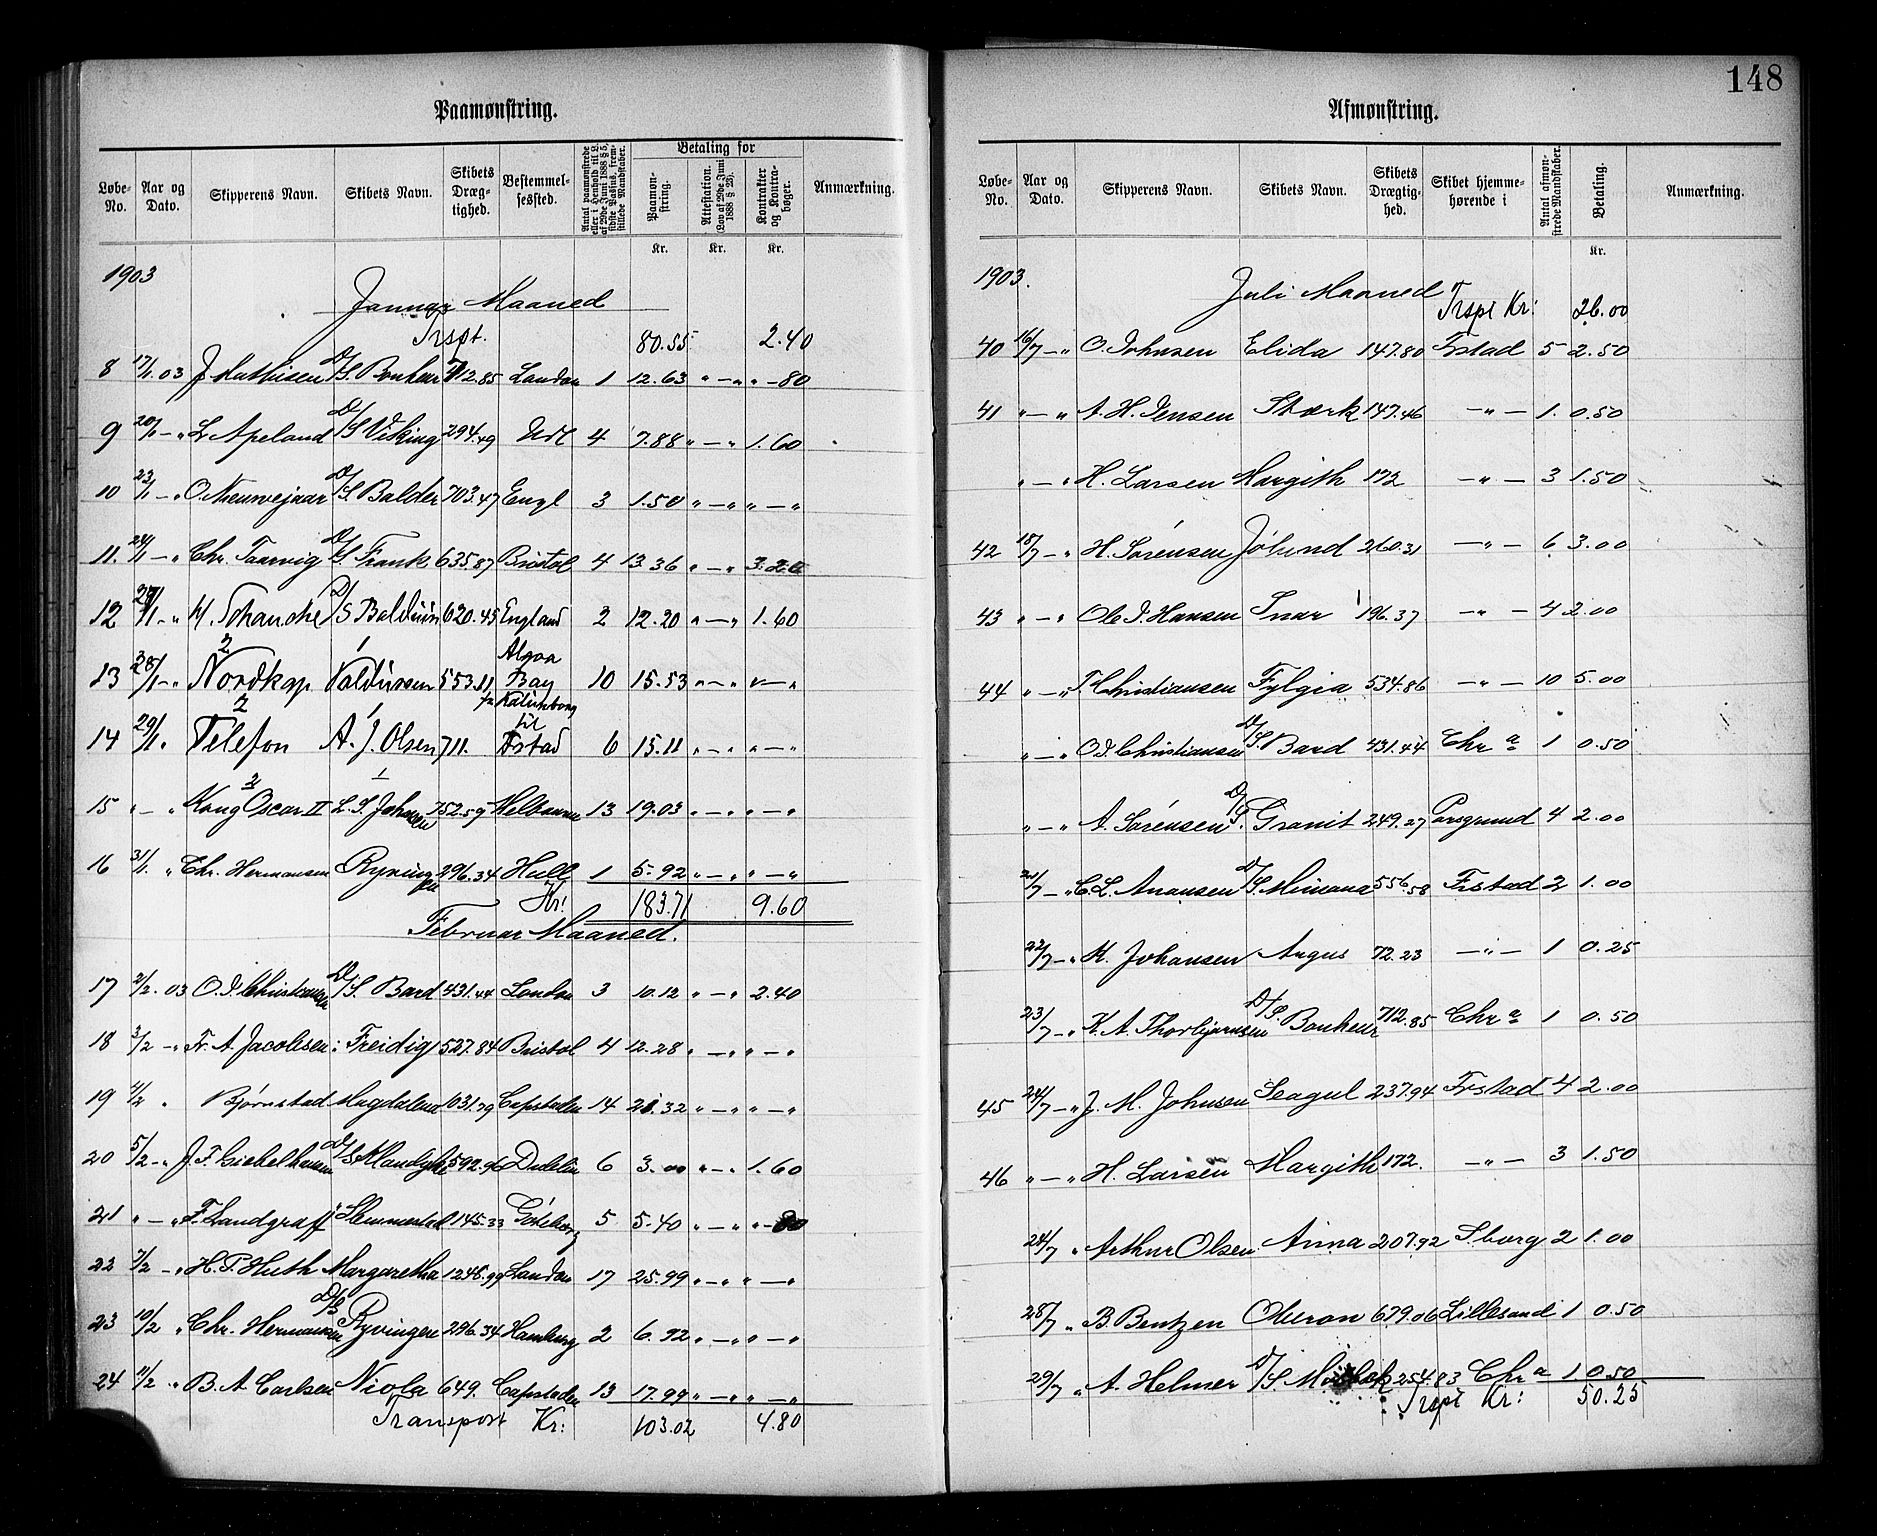 148
Paamønstring.
Løbe-No. Aar og Dato. Skipperens Navn. Skibets Navn. Skibets Dræg-tighed. Bestemmel-sessted. Antal paamønstrede eller i Henhold til L. af 29de Juni 1888 § 5, sidste Passus, frem-stillede Mandskaber. Betaling for Paamøn-string. Attestation. (Lov af 29de Juni 1888 § 23). Kontrakter og Kontra-bøger. Anmærkning.
Kr. Kr. Kr.
1903
Januar Maaned
Trspt. 80.55 2.40
8 17/1.03 J. Mathisen D/S. Bonheur 712.85 London 1 12.63 " — " " -80
9 20/1 - " L Apeland D/S Viking 294.49 Udl 4 7.88 " — " 1.60
10 23/1 - " O. Nieuwejaar D/S Balder 703.47 Engl 3 1.50 " — " " — "
11. 24/1 - " Chr. Taarvig D/S Frank 635.87 Bristol 4 13.36 " — " 3.20
12 27/1 - " W. Schanche D/S Balduin 620.45 England 2 12.20 " — " 1.60
13 28/1 - " 2 Nordkap 1 Valdissen 553.11 Algoa Bay 10 15.53 " — " " — "
14 29/1 " 2 Telefon 1 A. J. Olsen 711. fra Kallundborg til Fstad 6 15.11 " — " " — "
15 " - " 2 Kong Oscar II 1 L. S. Johnsen 752.59 Melbourne 13 19.03 " — " " — "
16 31/1. " Chr. Hermansen Ryvingen 296.34 Hull 1 5.92 " — " " — "
Kr! 183.71 9.60
Februar Maaned.
17 2/2.03 O. J. Christiansen D/S. Bard 431.44 London 3 10.12 " — " 2.40
18 3/2 - " Fr. A. Jacobsen Freidig 527.84 Bristol 4 12.28 " — " " — "
19 4/2 " Bjørnstad Magdalena 1031.79 Capstaden 14 21.32 " — " " — "
20 5/2 - " J. F. Giebelhausen D/S 592.96 Dublin 6 3.00 " — " 1.60
21 " - " F. Landgraff Slemmestad 145.33 Göteborg 5 5.40 " — " " -80
22 7/2 - " H. P. Huth Margaretha 1248.99 London 17 25.99 " — " " — "
23 10/2 " Chr. Hermansen D/S Ryvingen 296.34 Hamburg 2 6.92 " — " " — "
24 11/2 " B. A. Carlsen Niola 649. Capstaden 13 17.99 " — " " — "
Transport Kr: 103.02 4.80
Afmønstring.
Løbe-No. Aar og Dato. Skipperens Navn. Skibets Navn. Skibets Drægtig-hed. Skibet hjemme-hørende i Antal afmøn-strede Mandskaber. Betaling. Anmærkning.
Kr.
1903.
Juli Maaned
Trspt Kr: 26.00
40 16/7 - " O. Johnsen Elida 147.80 Frstad 5 2.50
41 " - " A. H. Jensen Stærk 147.46 — " — 1. 0.50
" - " H. Larsen Margith 172 — " — 3 1.50
42 18/7 - " H. Sørensen Jølund 260.31 — " — 6 3.00
43 " - " Ole J. Hansen Snar 196.37 — " — 4 2.00
44 " - " T. Christiansen Fylgia 534.86 — " — 10 5.00
" - " O J Christiansen D/S. Bard 431.44 Chr a 1 0.50
" - " A. Sørensen D/S. Granit 249.27 Porsgrund 4 2.00
21/7 - " C. L. Anonsen D/S. Mimona 556.58 Frstad 2 1.00
22/7 - " K. Johansen Argus 72.23 — " — 1 0.25
23/7 - " K. A. Thorbjørnsen D/S. Bonheur 712.85 Chr a 1 0.50
45 24/7 - " J. M. Johnsen Seagul 237.94 Frstad 4 2.00
46 " - " H. Larsen Margith 172. — " — 3 1.50
24/7 " Arthur Olsen Anna 207.92 S.borg 2 1.00
28/7 " B. Bentzen Oberon 679.06 Lillesand 1 0.50
29/7 " A. Helmer D/S. 254.83 Chr a 1 0.50
Trspt Kr: 50.25